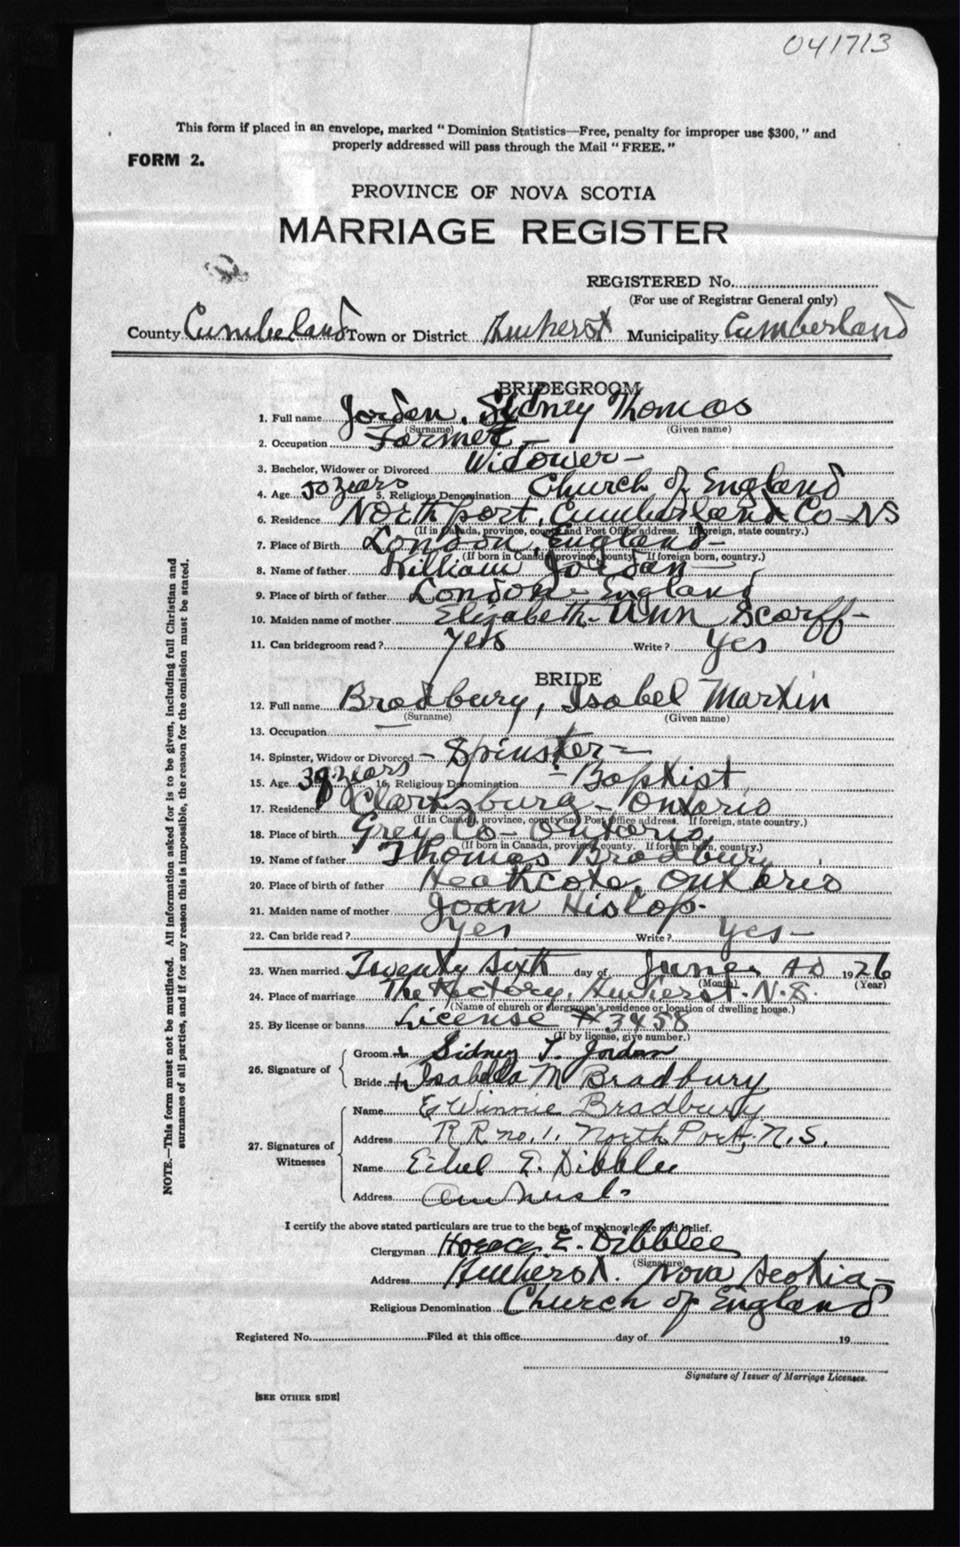 041713
This form if placed in an envelope, marked " Dominion Statistics—Free, penalty for improper use $300, " and
properly addressed will pass through the Mail " FREE. "
FORM 2.
PROVINCE OF NOVA SCOTIA
MARRIAGE REGISTER
REGISTERED No.
(For use of Registrar General only)
County Cumbeland Town or District Amherst Municipality Cumberland
BRIDEGROOM
1. Full name Jorden, Sydney Thomas
(Surname) (Given name)
2. Occupation Farmer –
3. Bachelor, Widower or Divorced Widower –
4. Age 50 years 5. Religious Denomination Church of England
6. Residence Northport, Cumberland Co NS
(If in Canada, province, county and Post Office address. If foreign, state country.)
7. Place of Birth London, England –
(If born in Canada province, county. If foreign born, country.)
8. Name of father William Jordan –
9. Place of birth of father London – England
10. Maiden name of mother Elizabeth – Ann Scorff –
11. Can bridegroom read? yes Write? yes
BRIDE
12. Full name Bradbury, Isabel Martin
(Surname) (Given name)
13. Occupation –
14. Spinster, Widow or Divorced – Spinster –
15. Age 39 years 16. Religious Denomination – Baptist
17. Residence Clarksburg – Ontario
(If in Canada, province, county and Post Office address. If foreign, state country.)
18. Place of birth Grey Co – Ontario
(If born in Canada, province, county. If foreign born, country.)
19. Name of father Thomas Bradbury
20. Place of birth of father Heathcote, Ontario
21. Maiden name of mother Joan Hislop.
22. Can bride read? yes Write? yes –
23. When married Twenty Sixth day of June AD 1926
(Month) (Year)
24. Place of marriage The Rectory, Amherst. N.S.
(Name of church or clergyman's residence or location of dwelling house.)
25. By license or banns License # 3458
(If by license, give number.)
26. Signature of
Groom + Sidney T. Jordan
Bride + Isabella M Bradbury
27. Signatures of Witnesses
Name E Winnie Bradbury
Address R R no. 1. North Port, N.S.
Name Ethel E. Dibblee
Address Amherst
I certify the above stated particulars are true to the best of my knowledge and belief.
Clergyman Horace E. Dibblee
(Signature)
Address Amherst. Nova Scotia –
Religious Denomination Church of England
Registered No. Filed at this office day of 19
Signature of Issuer of Marriage Licenses.
[SEE OTHER SIDE]
NOTE.—This form must not be mutilated. All information asked for is to be given, including full Christian and
surnames of all parties, and if for any reason this is impossible, the reason for the omission must be stated.